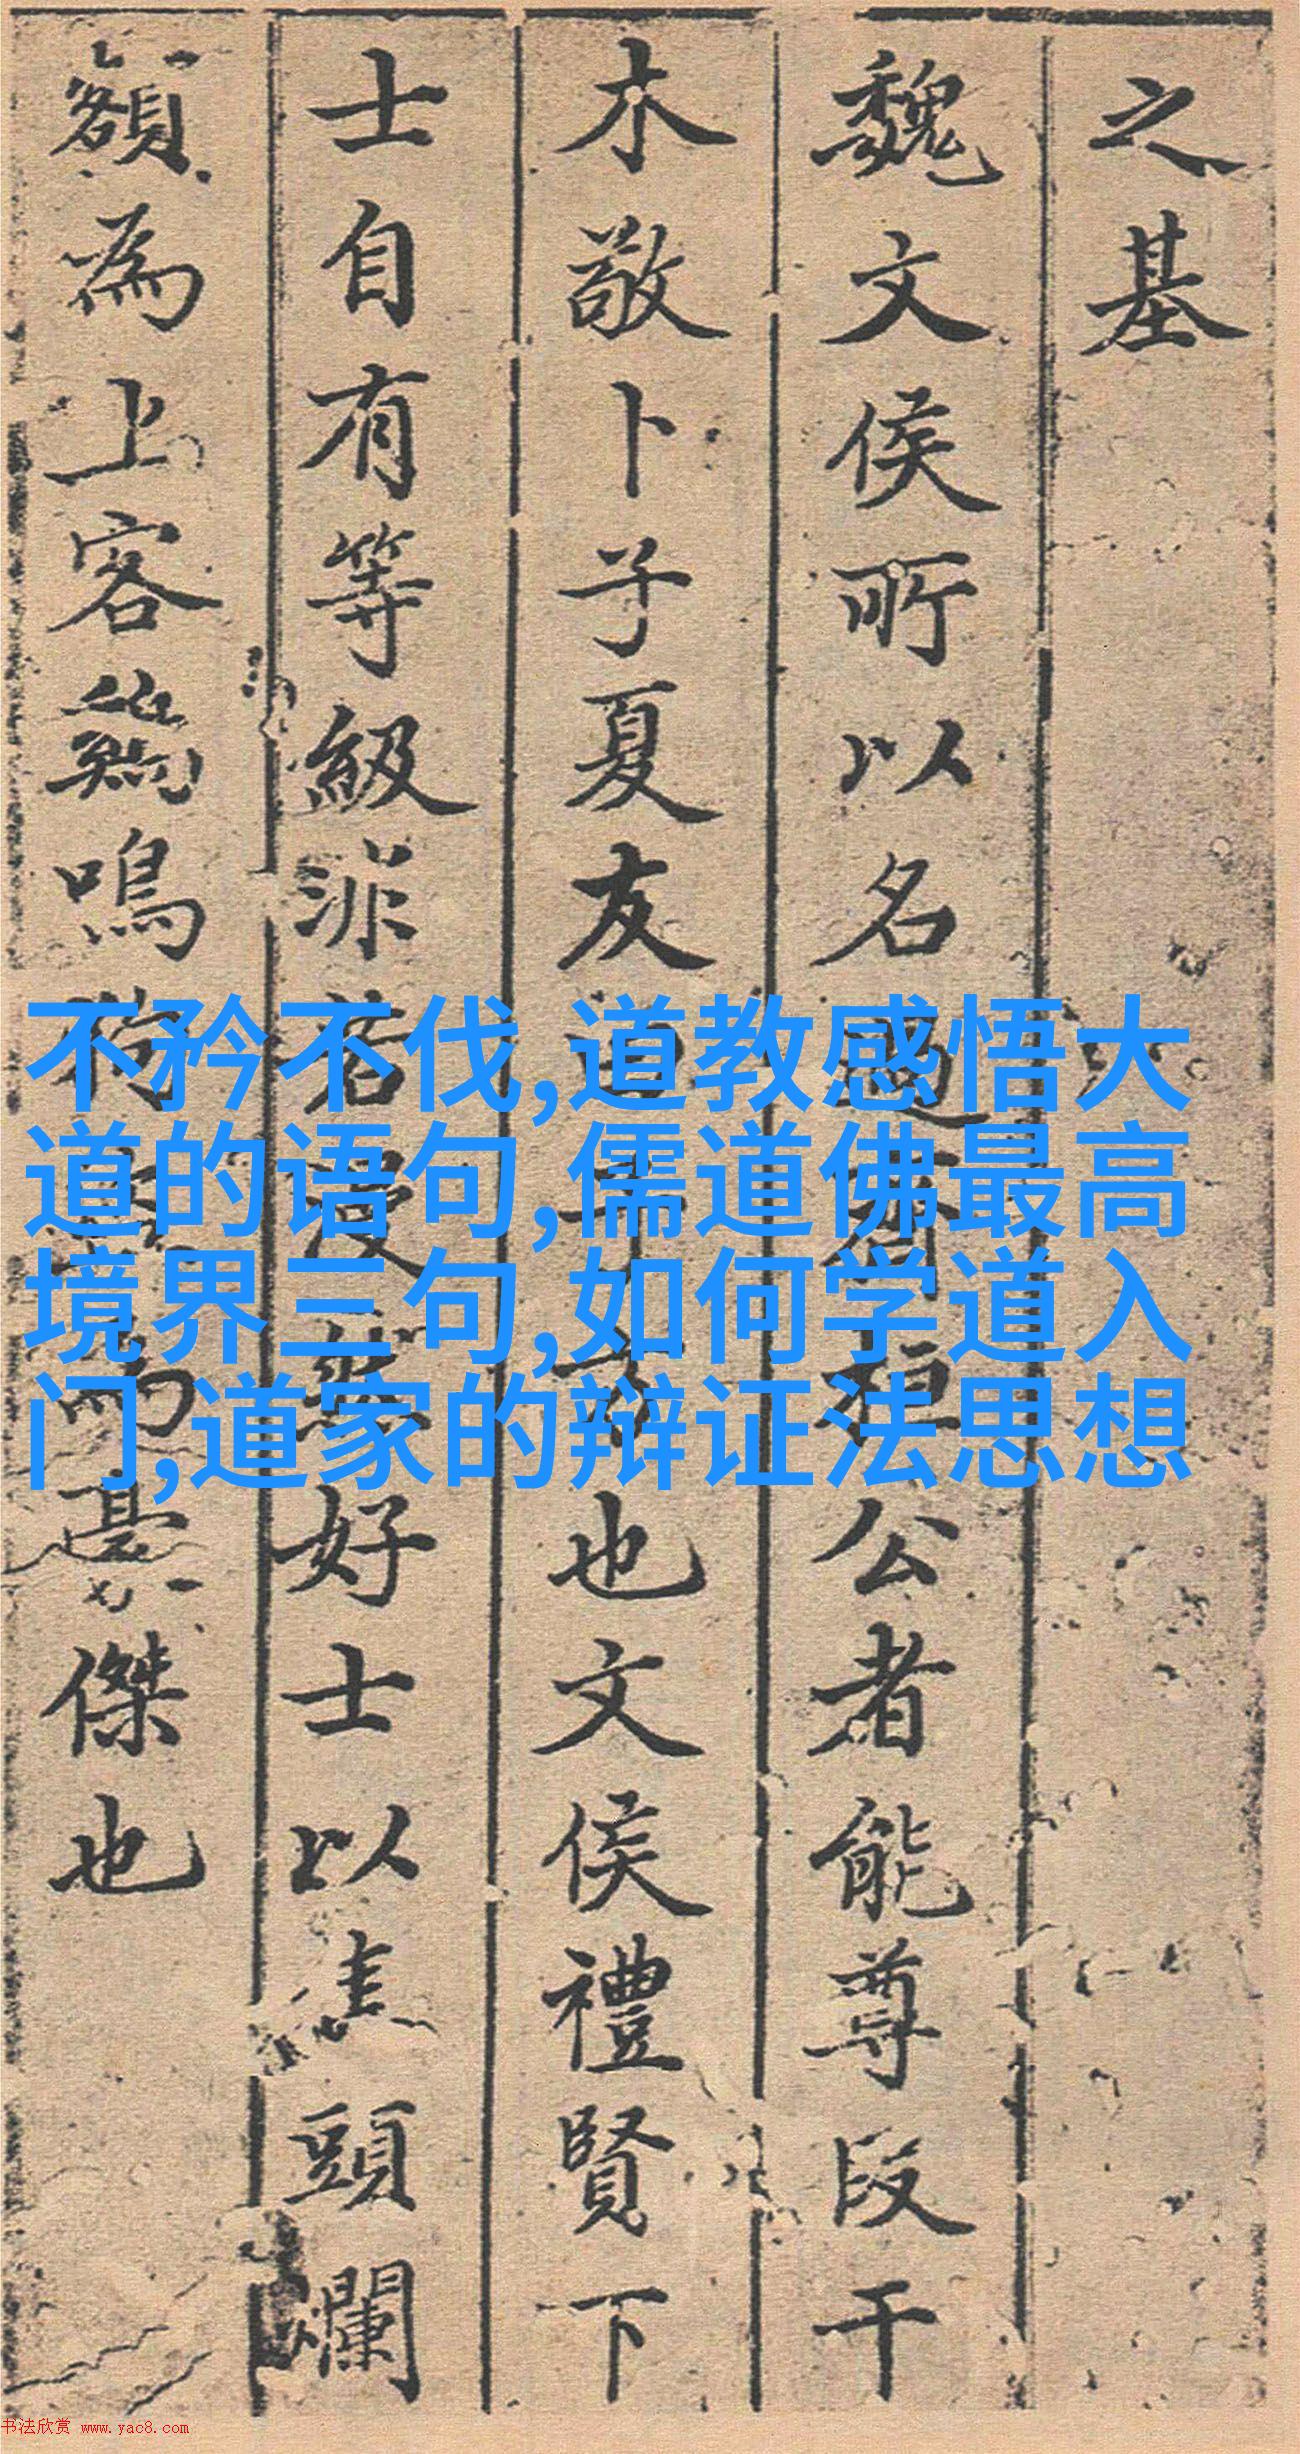 之基
魏文侯所以名過齊桓公者能尊段干
木敬卜子夏友田子方也文侯禮賢下
士自有等級非若漫然好士以焦頭爛
額為上客雞鳴狗盜為豪傑也
不矜不伐,道教感悟大
道的语句,儒道佛最高
境界三句,如何学道入
门,道家的辩证法思想
书法欣赏 www.yac8.com